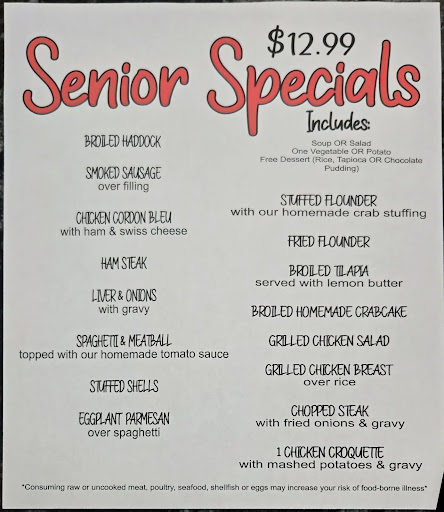 $12.99
Senior Specials
Includes:
Soup OR Salad
One Vegetable OR Potato
Free Dessert (Rice, Tapioca OR Chocolate
Pudding)
BROILED HADDOCK
SMOKED SAUSAGE
over filling
CHICKEN CORDON BLEU
with ham & swiss cheese
HAM STEAK
LIVER & ONIONS
with gravy
SPAGHETTI & MEATBALL
topped with our homemade tomato sauce
STUFFED SHELLS
EGGPLANT PARMESAN
over spaghetti
STUFFED FLOUNDER
with our homemade crab stuffing
FRIED FLOUNDER
BROILED TILAPIA
served with lemon butter
BROILED HOMEMADE CRABCAKE
GRILLED CHICKEN SALAD
GRILLED CHICKEN BREAST
over rice
CHOPPED STEAK
with fried onions & gravy
1 CHICKEN CROQUETTE
with mashed potatoes & gravy
*Consuming raw or uncooked meat, poultry, seafood, shellfish or eggs may increase your risk of food-borne illness*